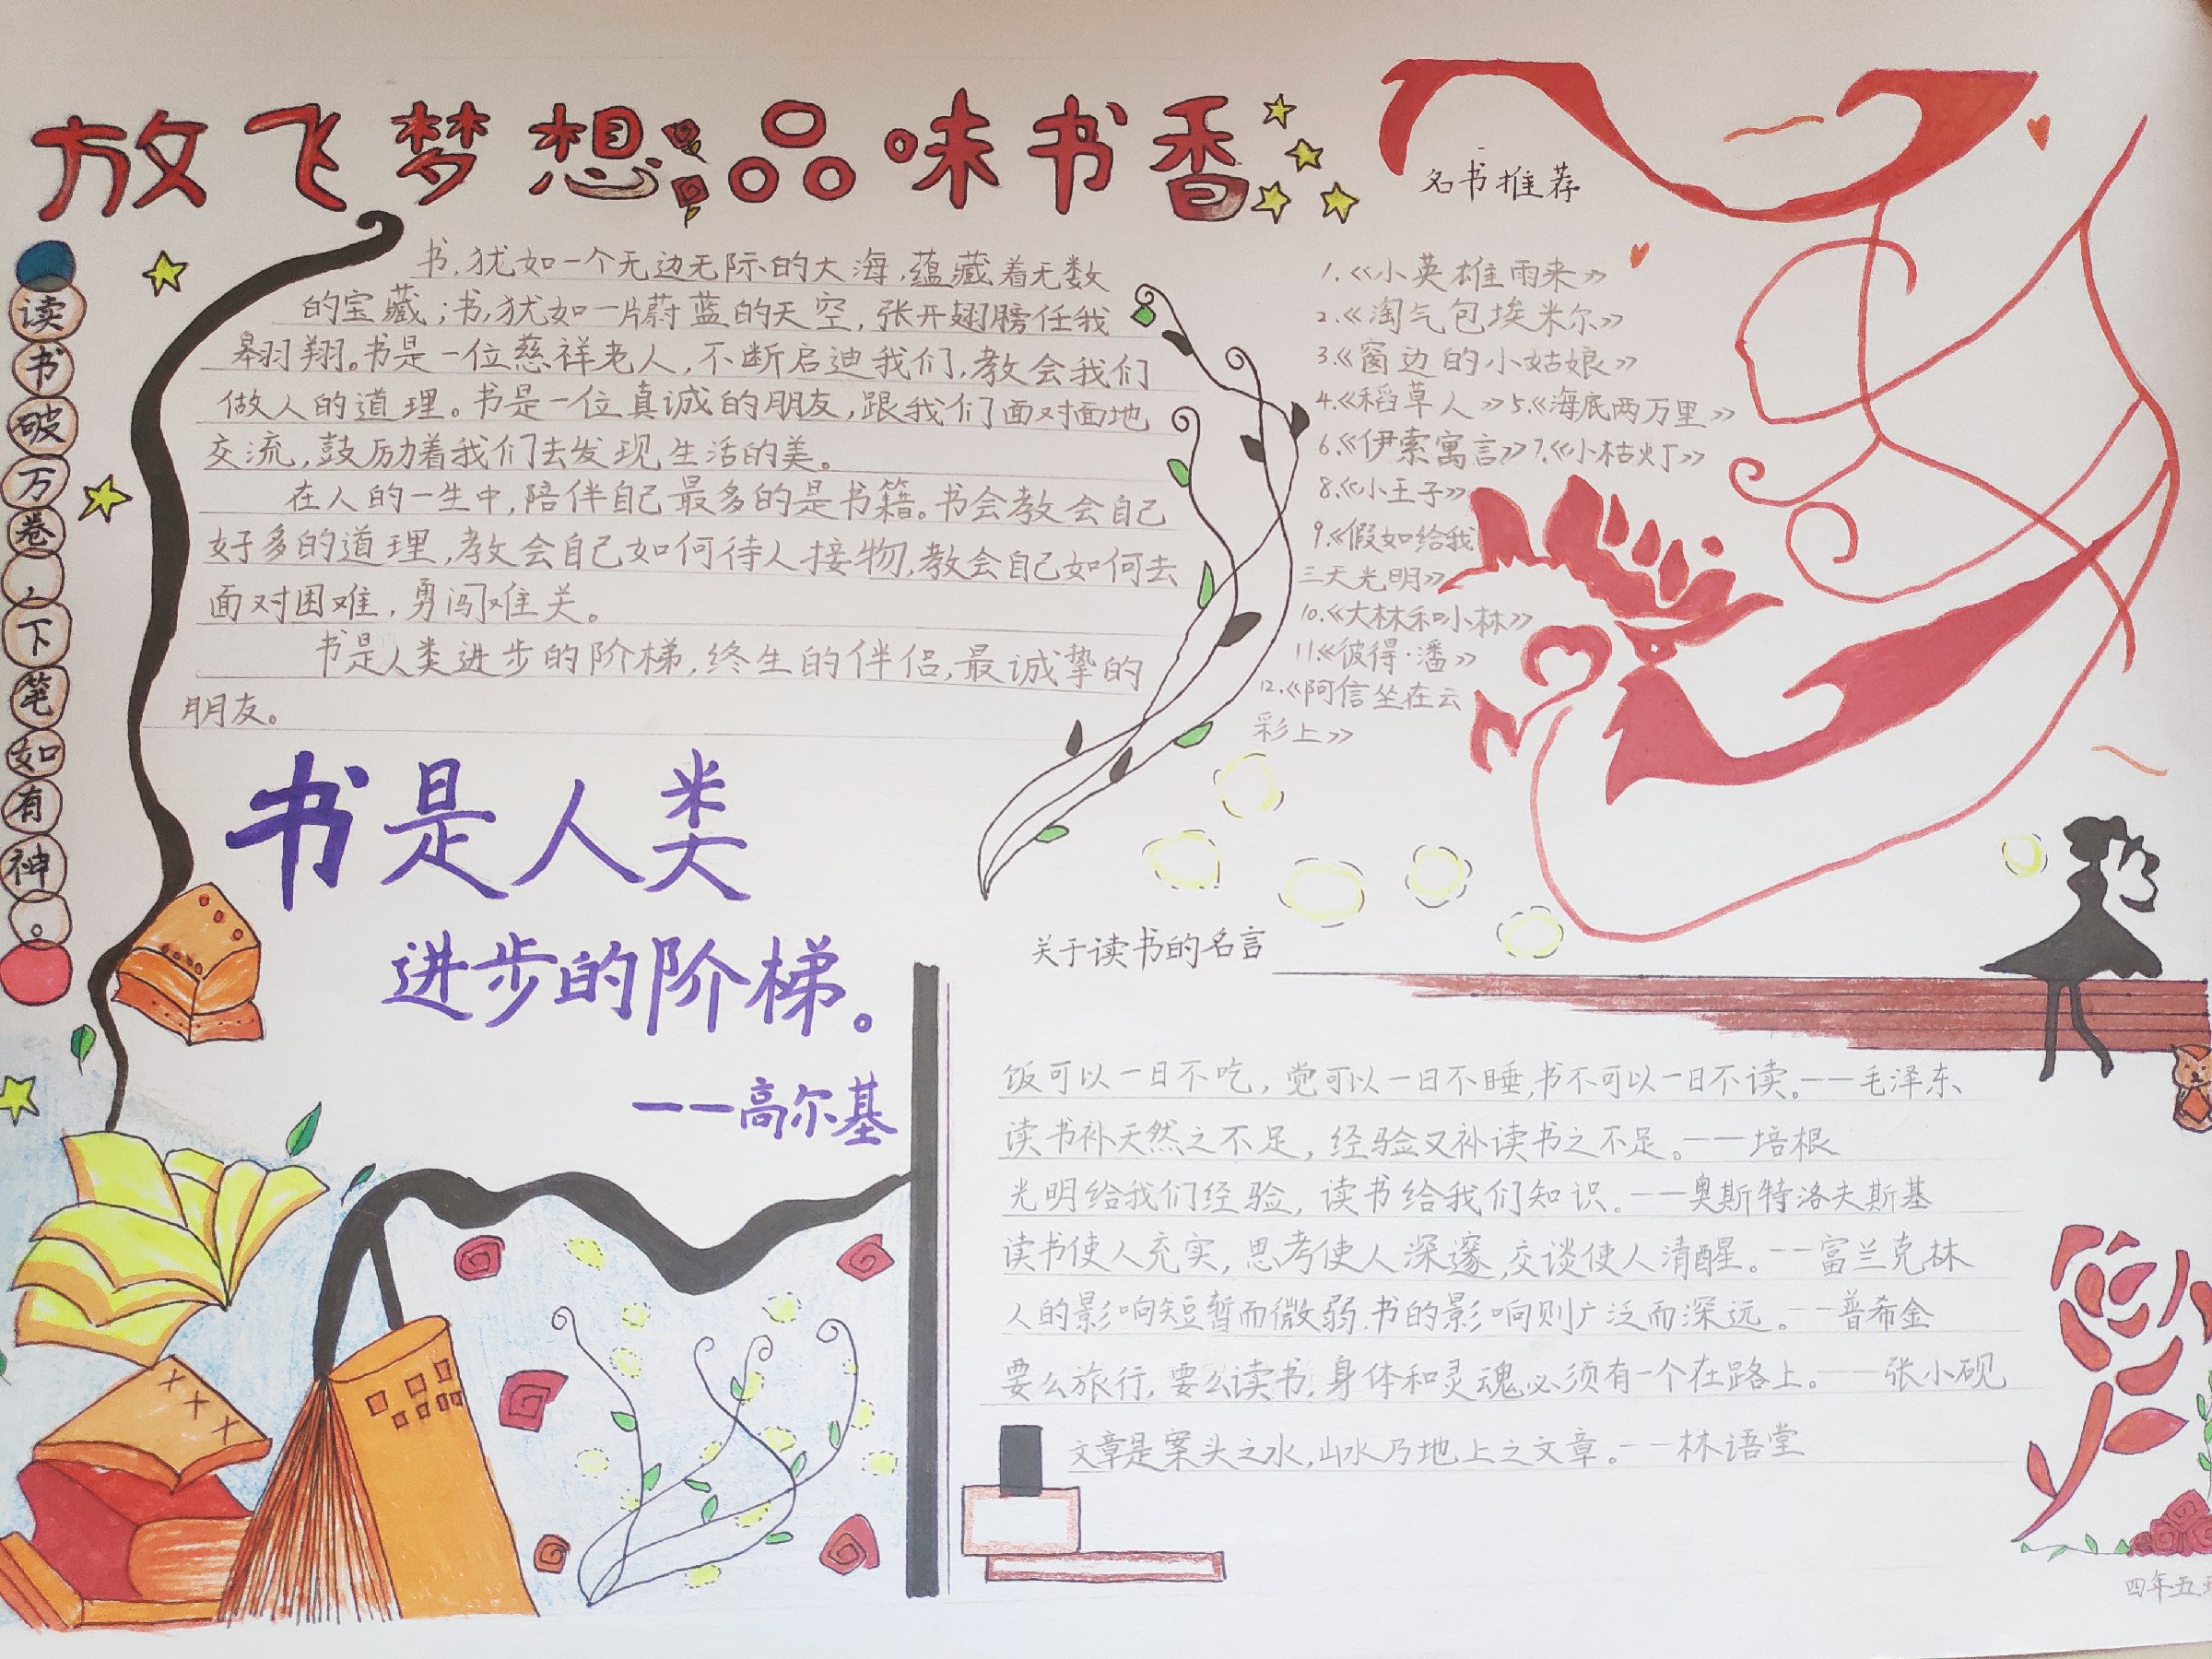 放飞梦想 品味书香
读书破万卷,下笔如有神。
书,犹如一个无边无际的大海,蕴藏着无数
的宝藏;书,犹如一片蔚蓝的天空,张开翅膀任我
翱翔。书是一位慈祥老人,不断启迪我们,教会我们
做人的道理。书是一位真诚的朋友,跟我们面对面地
交流,鼓励着我们去发现生活的美。
在人的一生中,陪伴自己最多的是书籍。书会教会自己
好多的道理,教会自己如何待人接物,教会自己如何去
面对困难,勇闯难关。
书是人类进步的阶梯,终生的伴侣,最诚挚的
朋友。
书是人类
进步的阶梯。
——高尔基
名书推荐
1.《小英雄雨来》
2.《淘气包埃米尔》
3.《窗边的小姑娘》
4.《稻草人》5.《海底两万里》
6.《伊索寓言》7.《小桔灯》
8.《小王子》
9.《假如给我
三天光明》
10.《大林和小林》
11.《彼得·潘》
12.《阿信坐在云
彩上》
关于读书的名言
饭可以一日不吃,觉可以一日不睡,书不可以一日不读。——毛泽东
读书补天然之不足,经验又补读书之不足。——培根
光明给我们经验,读书给我们知识。——奥斯特洛夫斯基
读书使人充实,思考使人深邃,交谈使人清醒。——富兰克林
人的影响短暂而微弱.书的影响则广泛而深远。——普希金
要么旅行,要么读书,身体和灵魂必须有一个在路上。——张小砚
文章是案头之水,山水乃地上之文章。——林语堂
四年五